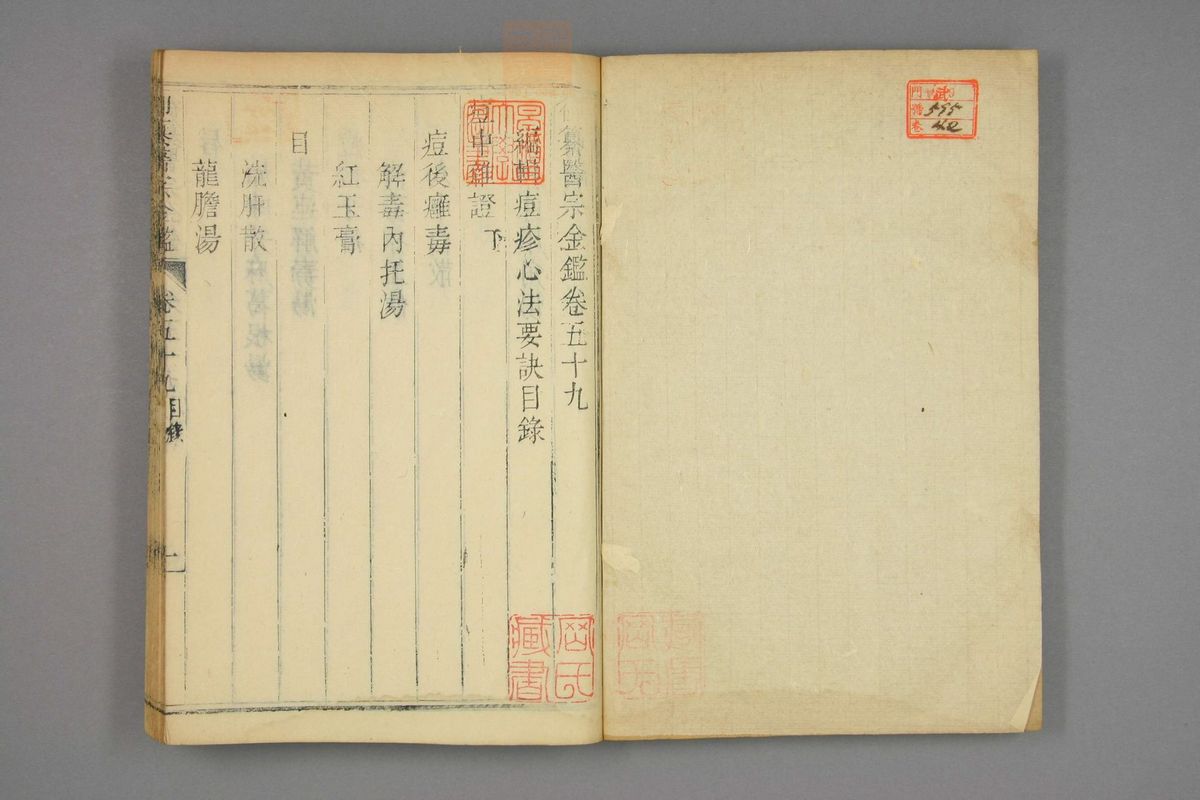 御纂醫宗金鑑卷五十九
編輯痘疹心法要訣目錄
痘中雜證下
痘後癰毒
解毒內托湯
紅玉膏
目
洗肝散
龍膽湯
卷五十九 目錄
一
岡氏藏書
門 武
番 595
巻 42